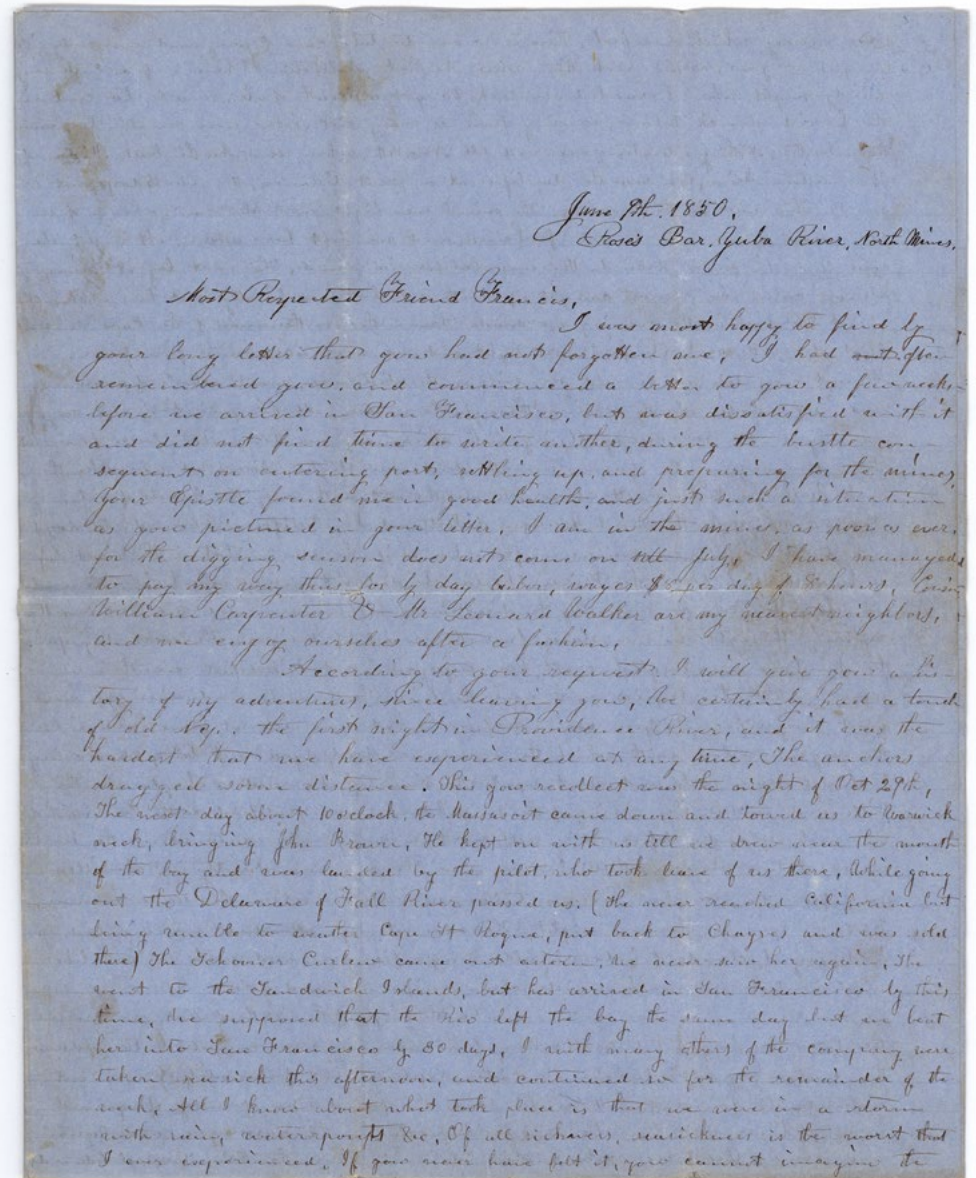 June 9th. 1850.
Rose's Bar, Yuba River, North Mines.
Most Respected Friend Francis,
I was most happy to find by
your long letter that you had not forgotten me. I had often
remembered you, and commenced a letter to you a few weeks
before we arrived in San Francisco, but was dissatisfied with it
and did not find time to write another, during the bustle con-
sequent on entering port, settling up, and preparing for the mines.
Your Epistle found me in good health, and just such a situation
as you pictured in your letter. I am in the mines, as poor as ever,
for the digging season does not come on till July. I have managed
to pay my way thus far by day labor, wages $8 per day of 8 hours. Cousin
William Carpenter & Mr Leonard Walker are my nearest neighbors,
and we enjoy ourselves after a fashion.
According to your request I will give you a his-
tory of my adventures, since leaving you. We certainly had a touch
of old Nep. the first night in Providence River, and it was the
hardest that we have experienced at any time. The anchors
dragged some distance. This you recollect was the night of Oct 29th.
The next day about 10 oclock, the Massasoit came down and towed us to Warwick
neck, bringing John Brown. He kept on with us till we drew near the mouth
of the bay and was landed by the pilot, who took leave of us there. While going
out the Delaware of Fall River passed us. (She never reached California but
being unable to weather Cape St Roque, put back to Chagres and was sold
there) The Schooner Curlew came out astern, we never saw her again. She
went to the Sandwich Islands, but has arrived in San Francisco by this
time. We supposed that the Rio left the bay the same day but we beat
her into San Francisco by 30 days. I with many others of the company were
taken seasick this afternoon, and continued so for the remainder of the
week. All I know about what took place is that we were in a storm
with rain, waterspouts &c. Of all sickness, seasickness is the worst that
I ever experienced. If you never have felt it, you cannot imagine the